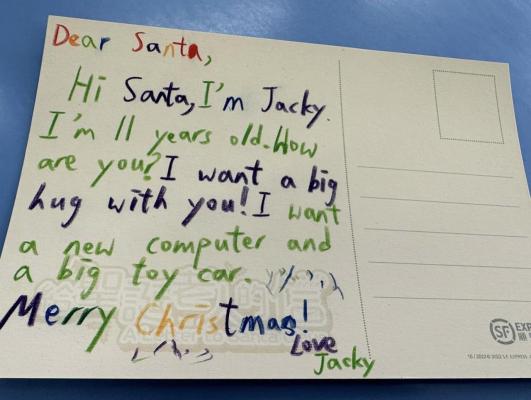 Dear Santa,
Hi Santa, I'm Jacky.
I'm 11 years old. How
are you? I want a big
hug with you! I want
a new computer and
a big toy car.
Merry Christmas!
Love
Jacky
SF EXP